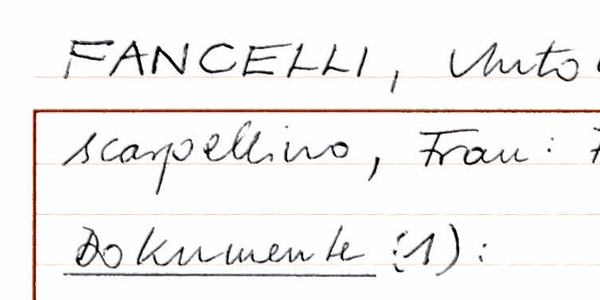 FANCELLI, Anto
scarpellino, Frau:
Dokumente (1):